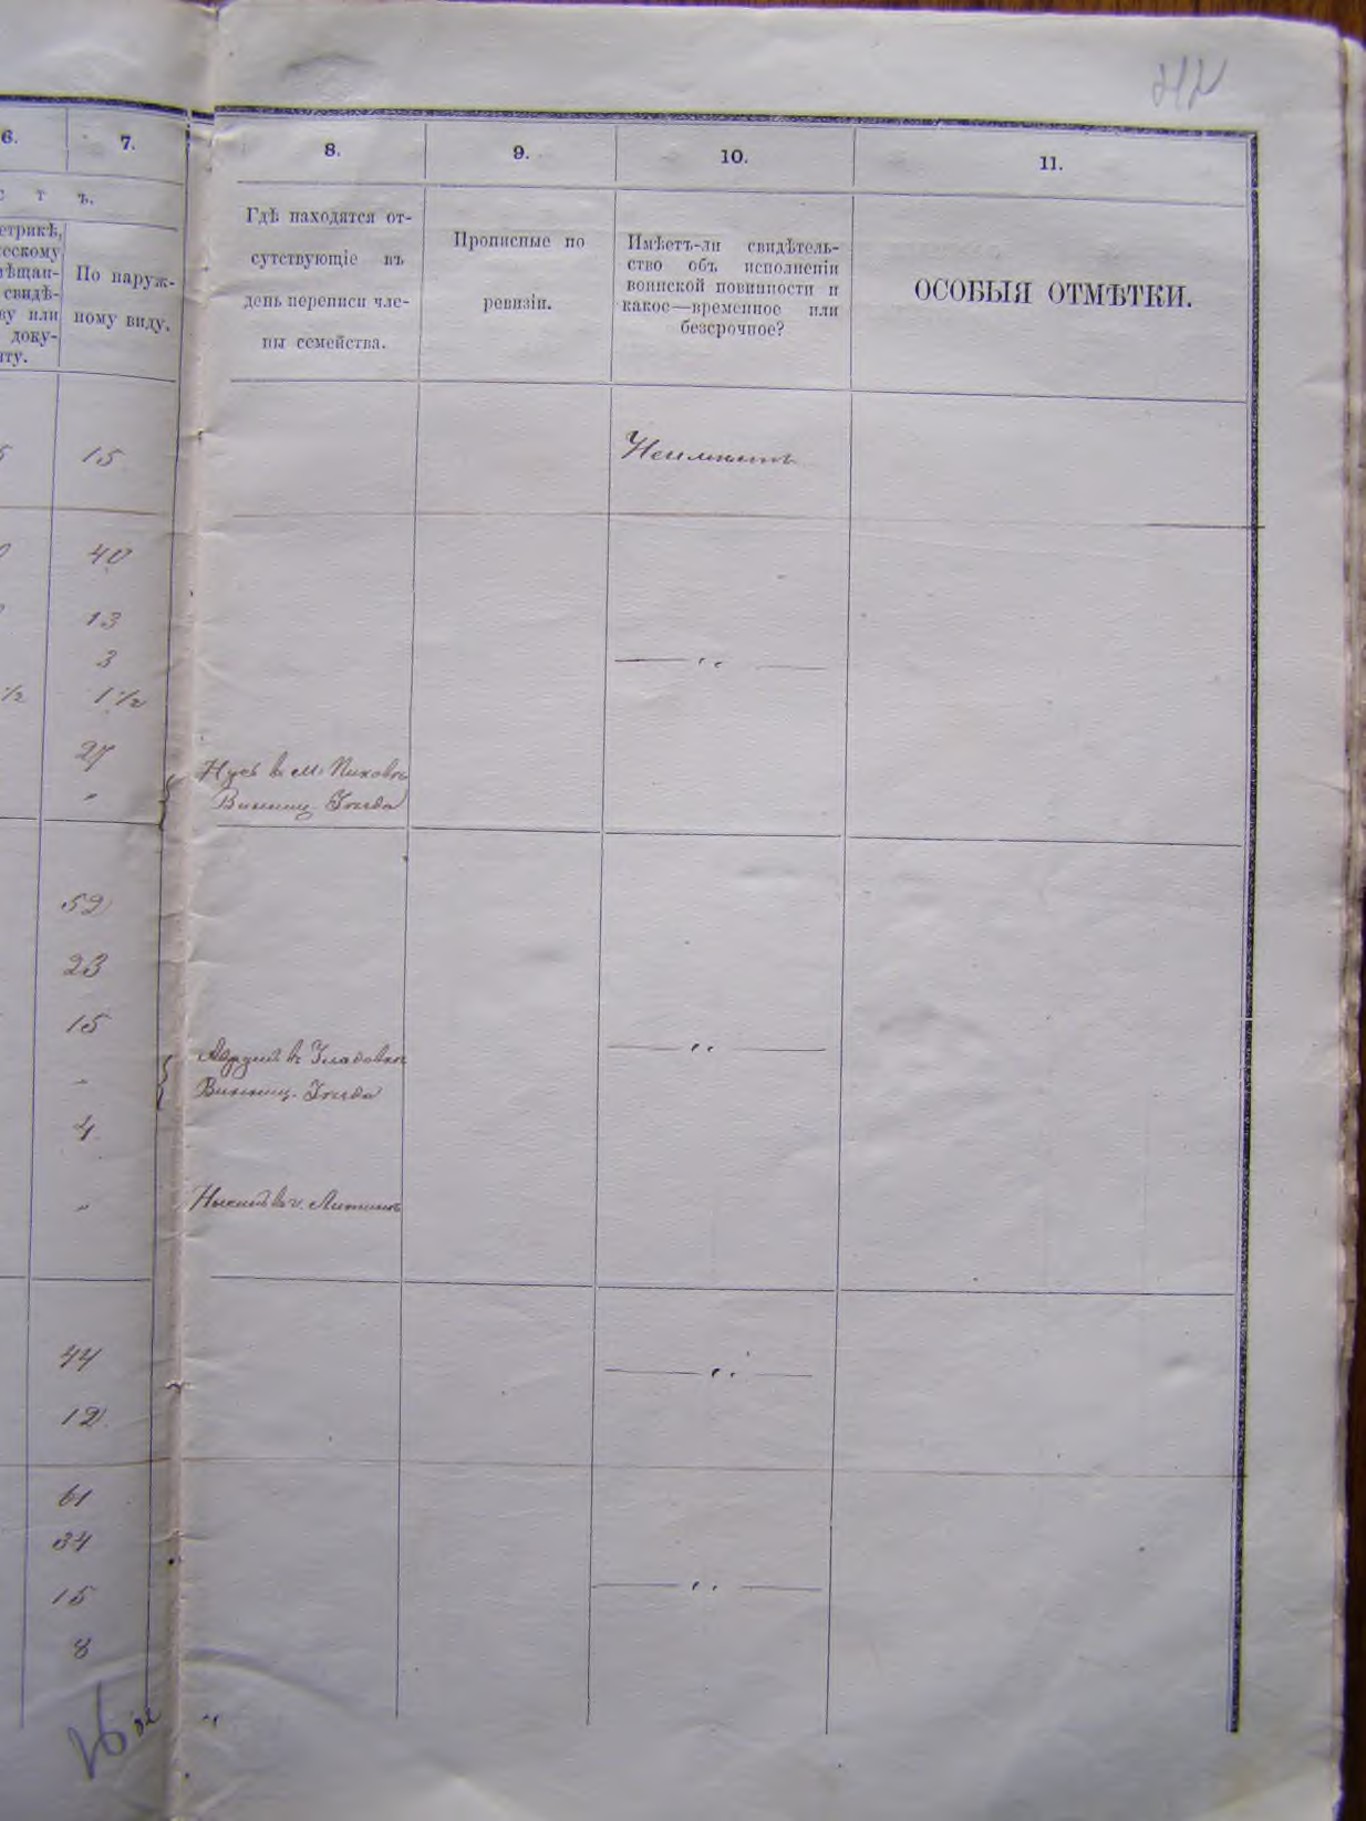 212
6.
7.
8.
9.
10.
11.
с т ъ.
етрикѣ,
ческому
вѣщан-
свидѣ-
ву или
доку-
нту.
По наруж-
ному виду.
Гдѣ находятся от-
сутствующіе въ
день переписи чле-
ны семейства.
Прописные по
ревизіи.
Имѣетъ-ли свидѣтель-
ство объ исполненіи
воинской повинности и
какое—временное или
безсрочное?
ОСОБЫЯ ОТМѢТКИ.
15
Неимѣетъ
40
13
3
— „ —
½
1½
27
"
Нусь въ м. Пиковѣ
Винниц. Уѣзда
52
23
15
— „ —
въ Уладовкѣ
"
Винниц. Уѣзда
4
"
въ г. Литинѣ
44
— „ —
12
61
34
15
— „ —
8